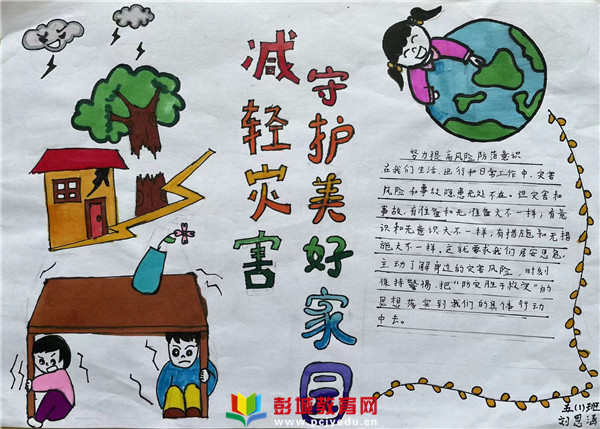 减轻灾害
守护美好家园
努力提高风险防范意识
在我们生活、出行和日常工作中，灾害
风险和事故隐患无处不在。但灾害和
事故，有准备和无准备大不一样；有意
识和无意识大不一样；有措施和无措
施大不一样。这就要求我们居安思危，
主动了解身边的灾害风险，时刻
保持警惕，把“防灾胜于救灾”的
思想落实到我们的具体行动
中去。
五(1)班
刘思涵
彭城教育网
www.pcjyw.com